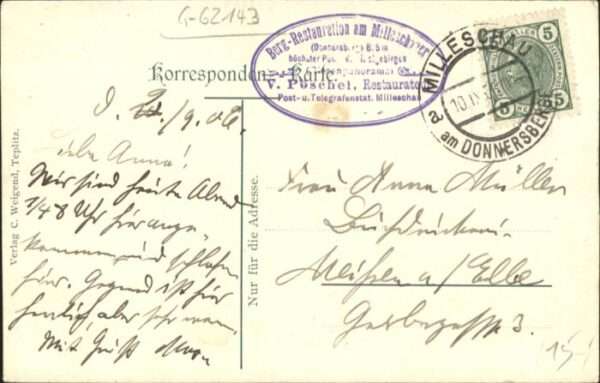 G-62143
Berg-Restauration am Milleschauer
(Donnersberg) B.
V. Püschel, Restaurateur
Post- u. Telegrafenstat. Milleschau
Korrespondenz-Karte.
MILLESCHAU
am DONNERSBERG
10.IX
5 5
5 5
/9.06.
Liebe Anna!
Wir sind heute Abend
1/48 Uhr hier ange
kommen und schlafen
hier. Gegend ist hier
herrlich, aber sehr warm.
Mit Gruß
Frau Anna Müller
Buchdruckerei
Meißen a/Elbe
3.
Verlag C. Weigend, Teplitz.
Nur für die Adresse.
15,-